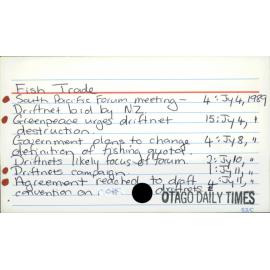 Fish Trade
South Pacific Forum meeting - 4 : Jy 4, 1989
Driftnet bid by NZ
Greenpeace urges driftnet 15 : Jy 4, "
destruction.
Government plans to change 4 : Jy 8, "
definition of fishing quota.
Driftnets likely focus of forum. 2 : Jy 10, "
Driftnets campaign. 1 : Jy 11, "
Agreement reached to draft 4 : Jy 11, "
convention on driftnets
OTAGO DAILY TIMES